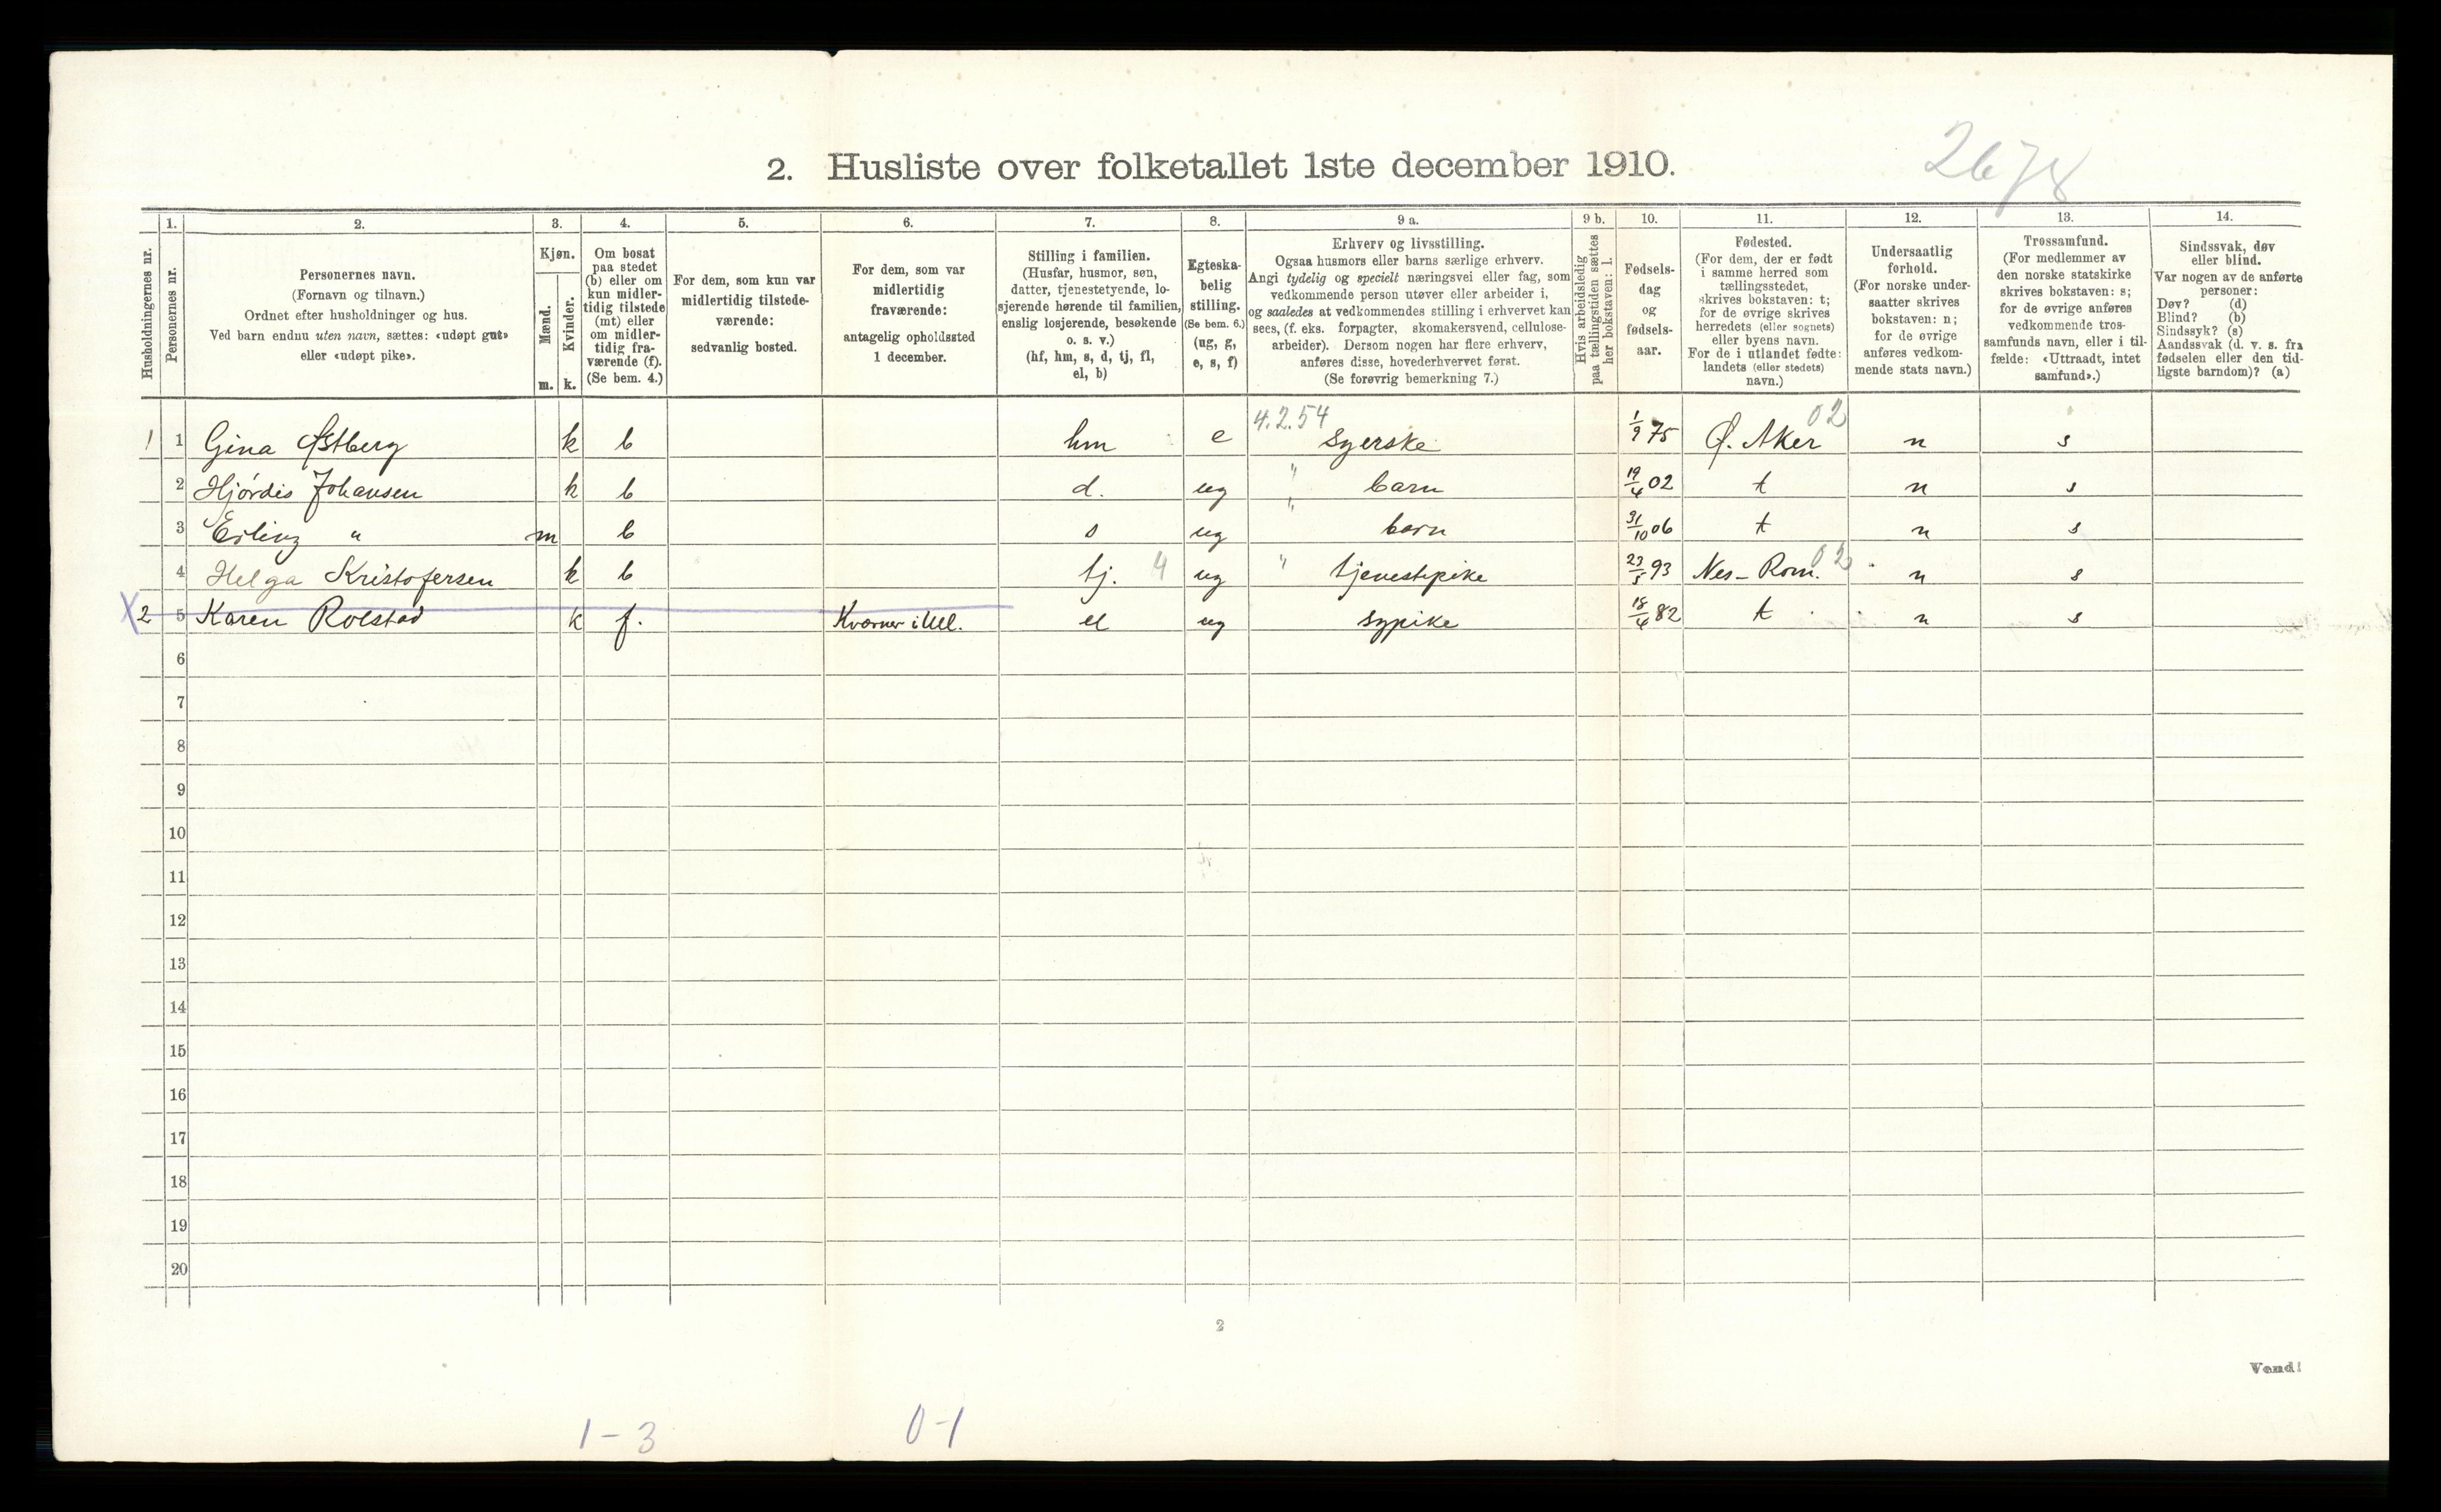 2678
2. Husliste over folketallet 1ste december 1910.
1. 2. 3. 4. 5. 6. 7. 8. 9 a. 9 b. 10. 11. 12. 13. 14.
Husholdningernes nr.
Personernes nr.
Personernes navn.
(Fornavn og tilnavn.)
Ordnet efter husholdninger og hus.
Ved barn endnu uten navn, sættes: «udøpt gut»
eller «udøpt pike».
Kjøn.
Mænd.
Kvinder.
m. k.
Om bosat
paa stedet
(b) eller om
kun midler-
tidig tilstede
(mt) eller
om midler-
tidig fra-
værende (f).
(Se bem. 4.)
For dem, som kun var
midlertidig tilstede-
værende:
sedvanlig bosted.
For dem, som var
midlertidig
fraværende:
antagelig opholdssted
1 december.
Stilling i familien.
(Husfar, husmor, søn,
datter, tjenestetyende, lo-
sjerende hørende til familien,
enslig losjerende, besøkende
o. s. v.)
(hf, hm, s, d, tj, fl,
el, b)
Egteska-
belig
stilling.
(Se bem. 6.)
(ug, g,
e, s, f)
Erhverv og livsstilling.
Ogsaa husmors eller barns særlige erhverv.
Angi tydelig og specielt næringsvei eller fag, som
vedkommende person utøver eller arbeider i,
og saaledes at vedkommendes stilling i erhvervet kan
sees, (f. eks. forpagter, skomakersvend, cellulose-
arbeider). Dersom nogen har flere erhverv,
anføres disse, hovederhvervet først.
(Se forøvrig bemerkning 7.)
Hvis arbeidsledig
paa tællingstiden sættes
her bokstaven: l.
Fødsels-
dag
og
fødsels-
aar.
Fødested.
(For dem, der er født
i samme herred som
tællingsstedet,
skrives bokstaven: t;
for de øvrige skrives
herredets (eller sognets)
eller byens navn.
For de i utlandet fødte:
landets (eller stedets)
navn.)
Undersaatlig
forhold.
(For norske under-
saatter skrives
bokstaven: n;
for de øvrige
anføres vedkom-
mende stats navn.)
Trossamfund.
(For medlemmer av
den norske statskirke
skrives bokstaven: s;
for de øvrige anføres
vedkommende tros-
samfunds navn, eller i til-
fælde: «Uttraadt, intet
samfund».)
Sindssvak, døv
eller blind.
Var nogen av de anførte
personer:
Døv? (d)
Blind? (b)
Sindssyk? (s)
Aandssvak (d. v. s. fra
fødselen eller den tid-
ligste barndom)? (a)
4.2.54 02
1 1 Gina Østberg k b hm e Syerske 1/9 75 Ø. Aker n s
2 Hjórdis Johansen k b d. ug " barn 19/4 02 t n s
3 Erling " m b s ug " barn 31/10 06 t n s
4 Helga Kristofersen k b tj. 4 ug " tjenestepike 23/5 93 Nes - Rom. 02 n s
X 2 5 Karen Rolstad k f. Kværner i Ull. el ug sypike 18/4 82 t n s
6
7
8
9
10
11
12
13
14
15
16
17
18
19
20
2
Vend!
1 - 3 0 - 1